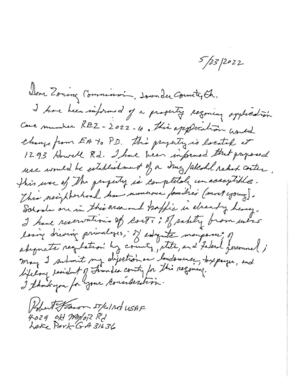 5/23/2022
Dear Zoning Commission, Lowndes County, Ga.
I have been informed of a property rezoning application
Case number REZ-2022-4. This application would
change from EA to P.D. This property is located at
1293 Howell Rd. I have been informed that proposed
use would be establishment of a Drug/Alcohol rehab center.
This use of the property is completely unacceptable.
This neighborhood has numerous families (most young).
Schools are in this area and traffic is already heavy.
I have reservations of cost; of safety from
losing driving privileges; of adequate manpower; of
adequate regulation by county, state, and Federal personnel;
May I submit my objection as landowner, taxpayer, and
lifelong resident of Lowndes county for this rezoning.
I thank you for your consideration.
Robert USAF
4029 Old Rd
Lake Park GA 31636